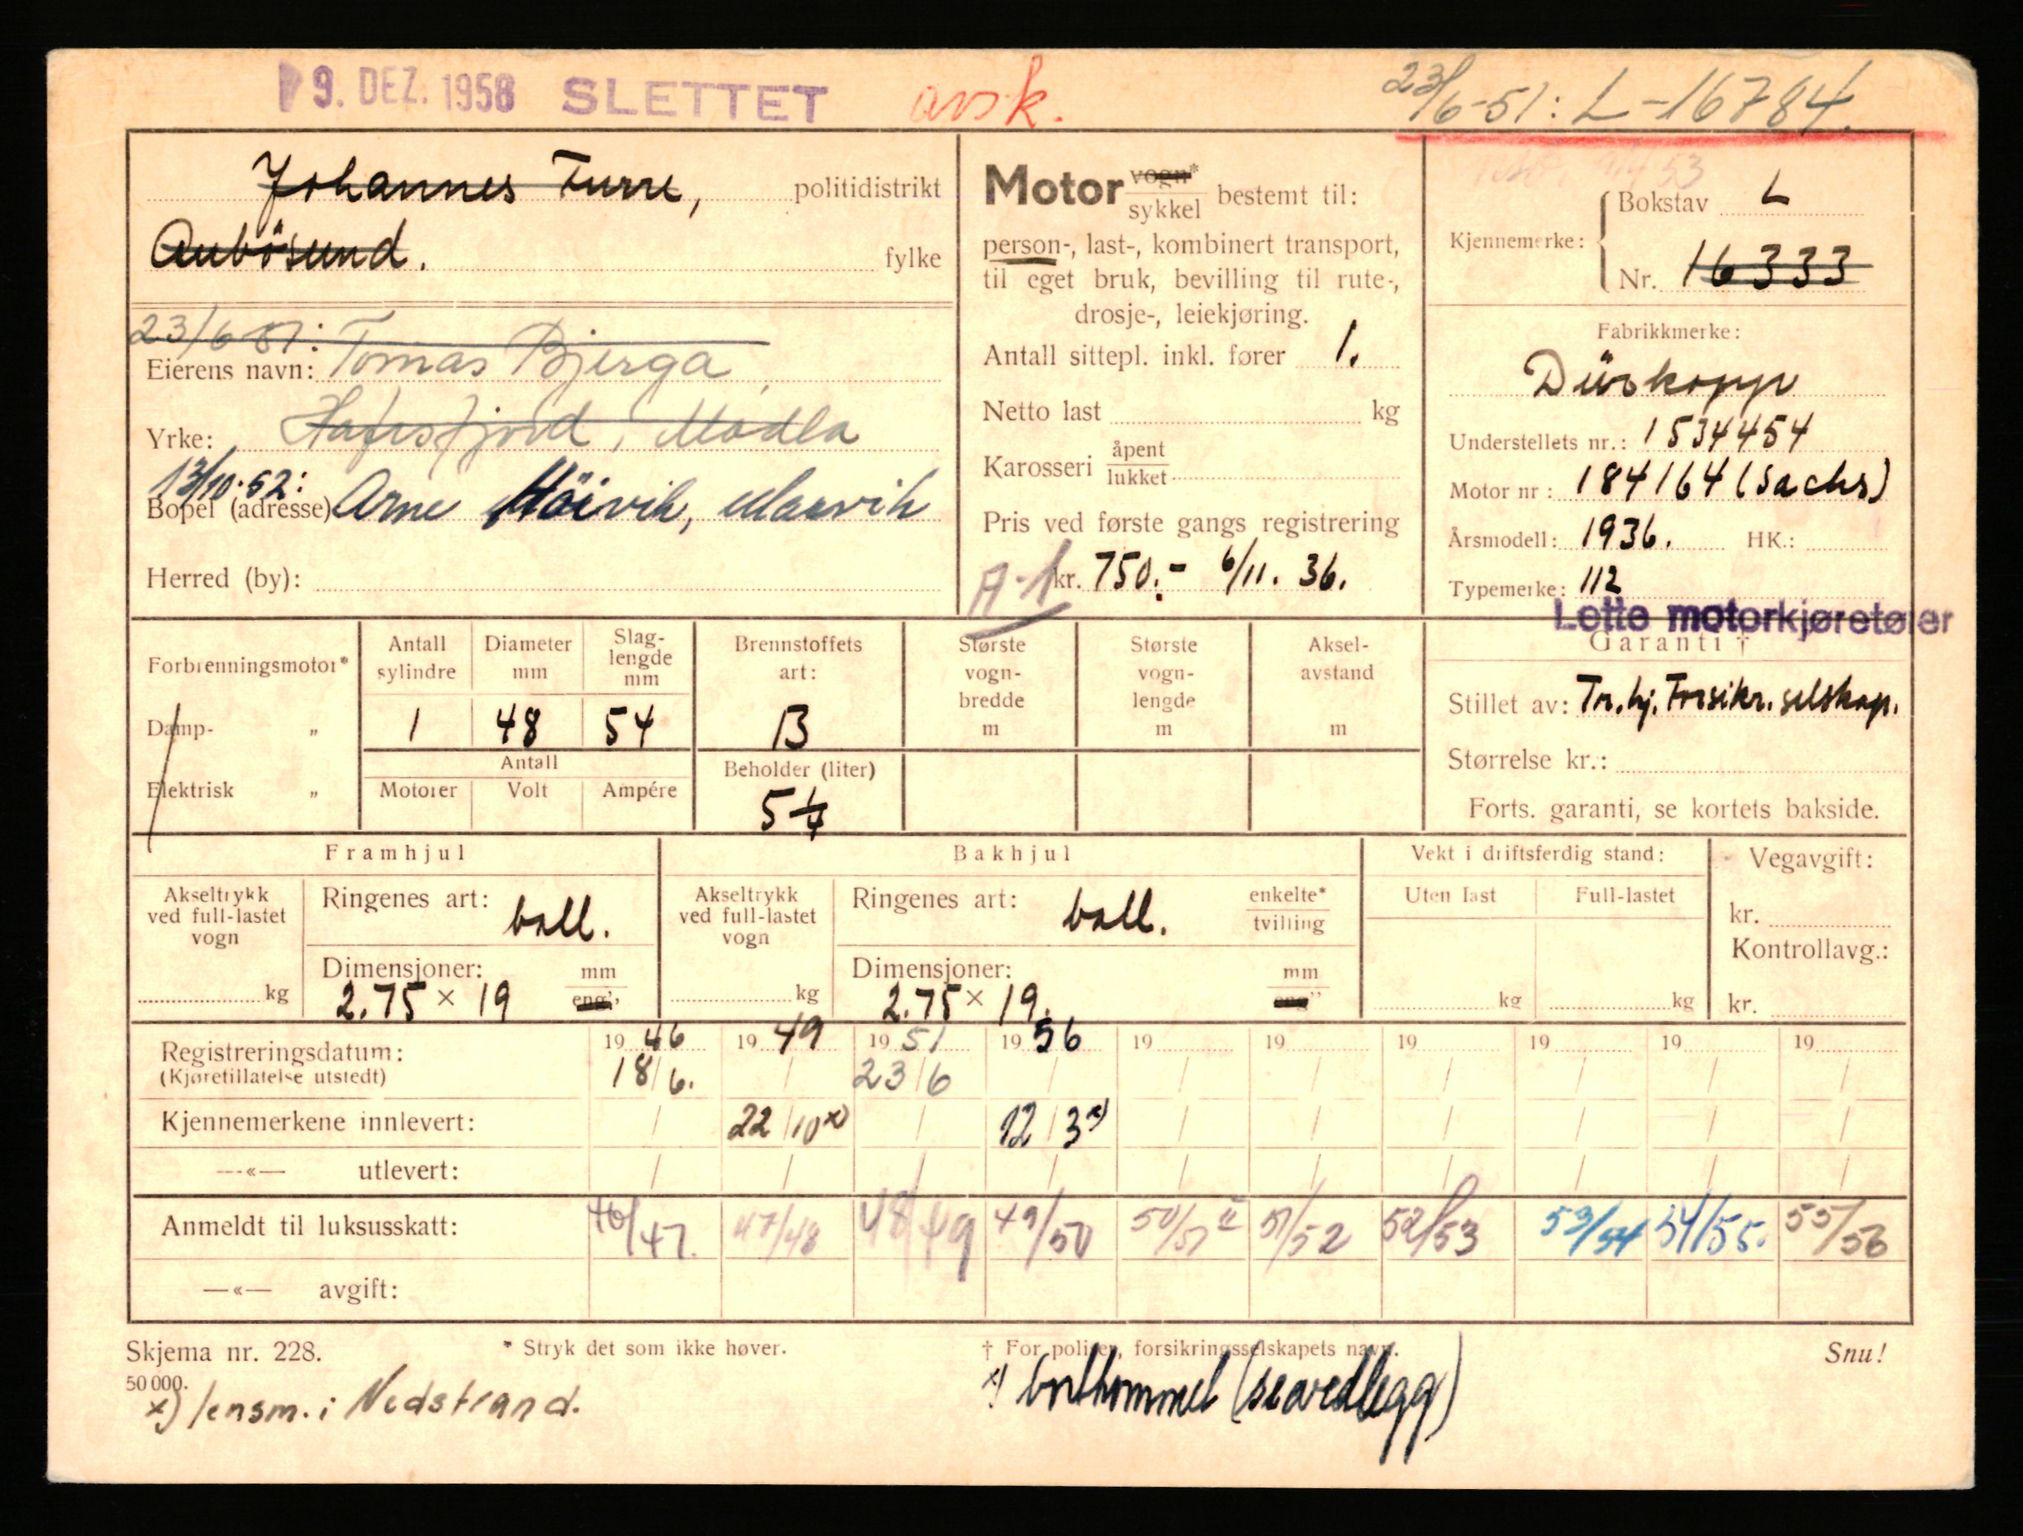 9. DEZ. 1958 SLETTET avsk. 23/6-51: L-16784.
Johannes Furre, politidistrikt
Aubösund. fylke
23/6 51:
Eierens navn: Tomas Bjerga,
Yrke: Hafrsfjord, Madla
13/10-52:
Bopel (adresse) Arne Höivik, Marvik
Herred (by):
Motor vogn* sykkel bestemt til:
person-, last-, kombinert transport,
til eget bruk, bevilling til rute-,
drosje-, leiekjøring.
Antall sittepl. inkl. fører 1.
Netto last kg
Karosseri åpent lukket
Pris ved første gangs registrering
A-1 kr. 750.- 6/11. 36.
Kjennemerke: Bokstav L
Nr. 16333
Fabrikkmerke:
Dürkopp
Understellets nr.: 1534454
Motor nr: 184164 (Sachs)
Årsmodell: 1936. HK.:
Typemerke: 112
Lette motorkjøretøier
Garanti †
Stillet av: Tr.hj. Forsikr.selskap.
Størrelse kr.:
Forts. garanti, se kortets bakside.
Forbrenningsmotor*
Damp- „
Elektrisk „
Antall sylindre Diameter mm Slag-lengde mm
1 48 54
Antall
Motorer Volt Ampére
Brennstoffets art:
B
Beholder (liter)
5 1/4
Største vogn-bredde m
Største vogn-lengde m
Aksel-avstand m
Framhjul
Akseltrykk ved full-lastet vogn kg
Ringenes art: ball.
Dimensjoner: mm eng"
2.75 × 19
Bakhjul
Akseltrykk ved full-lastet vogn kg
Ringenes art: ball. enkelte* tvilling
Dimensjoner: mm
2.75 × 19.
Vekt i driftsferdig stand:
Uten last Full-lastet
kg kg
Vegavgift:
kr.
Kontrollavg.:
kr.
Registreringsdatum: 19 46 19 49 19 51 19 56 19 19 19 19 19 19
(Kjøretillatelse utstedt) 18/6. / 23/6 / / / / / / /
Kjennemerkene innlevert: / 22/10 x) / 12/3 x) / / / / / /
—«— utlevert: / / / / / / / / / /
Anmeldt til luksusskatt: 46/47. 47/48 48/49 49/50 50/51 51/52 52/53 53/54 54/55. 55/56
—«— avgift:
Skjema nr. 228. * Stryk det som ikke høver. † For poliser, forsikringsselskapets navn. Snu!
50 000.
x) lensm. i Nedstrand. x) bortkommet (se vedlegg)